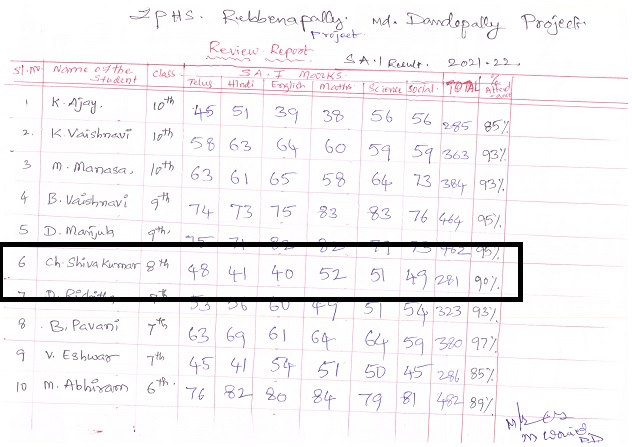 ZPHS. Rebbenapally. Md. Dandepally Project.
Project
Review Report
S.A.1 Result. 2021-22.
Sl.No Name of the Student Class S.A.I Marks. TOTAL
Telus Hindi English Maths Science Social
1 K. Ajay. 10th 45 51 39 38 56 56 285 85%
2. K. Vaishnavi 10th 58 63 64 60 59 59 363 93%
3 M. Manasa, 10th 63 61 65 58 64 73 384 93%
4 B. Vaishnavi 9th 74 73 75 83 83 76 464 95%
5 D. Manjula 9th. 462 95%
6 Ch. Shiva Kumar 8th 48 41 40 52 51 49 281 90%
7 53 56 60 49 51 54 323 93%
8 B. Pavani 7th 63 69 61 64 64 59 380 97%
9 V. Eshwar 7th 45 41 54 51 50 45 286 85%
10 M. Abhiram 6th. 76 82 80 84 79 81 482 89%